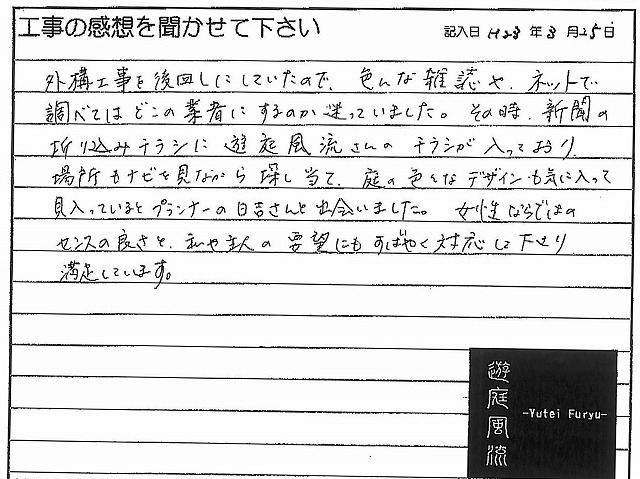 工事の感想を聞かせて下さい
記入日 H23年3月25日
外構工事を後回しにしていたので、色んな雑誌や、ネットで
調べてはどこの業者にするのか迷っていました。その時、新聞の
折り込みチラシに遊庭風流さんのチラシが入っており
場所もナビを見ながら探し当て、庭の色々なデザインも気に入って
見入っているとプランナーの日吉さんと出会いました。女性ならではの
センスの良さと、私や主人の要望にもすばやく対応して下さり
満足しています。
遊庭風流
-Yutei Furyu-